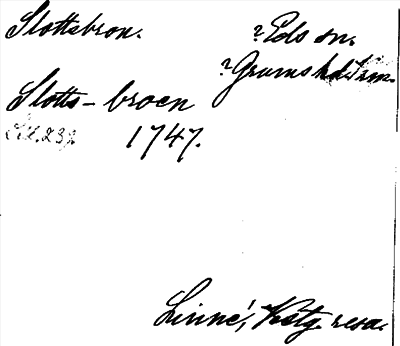 Slottsbron.
? Eds sn.
? Grums hd.
Slotts-broen
1747.
Linné, Wästg. resa.